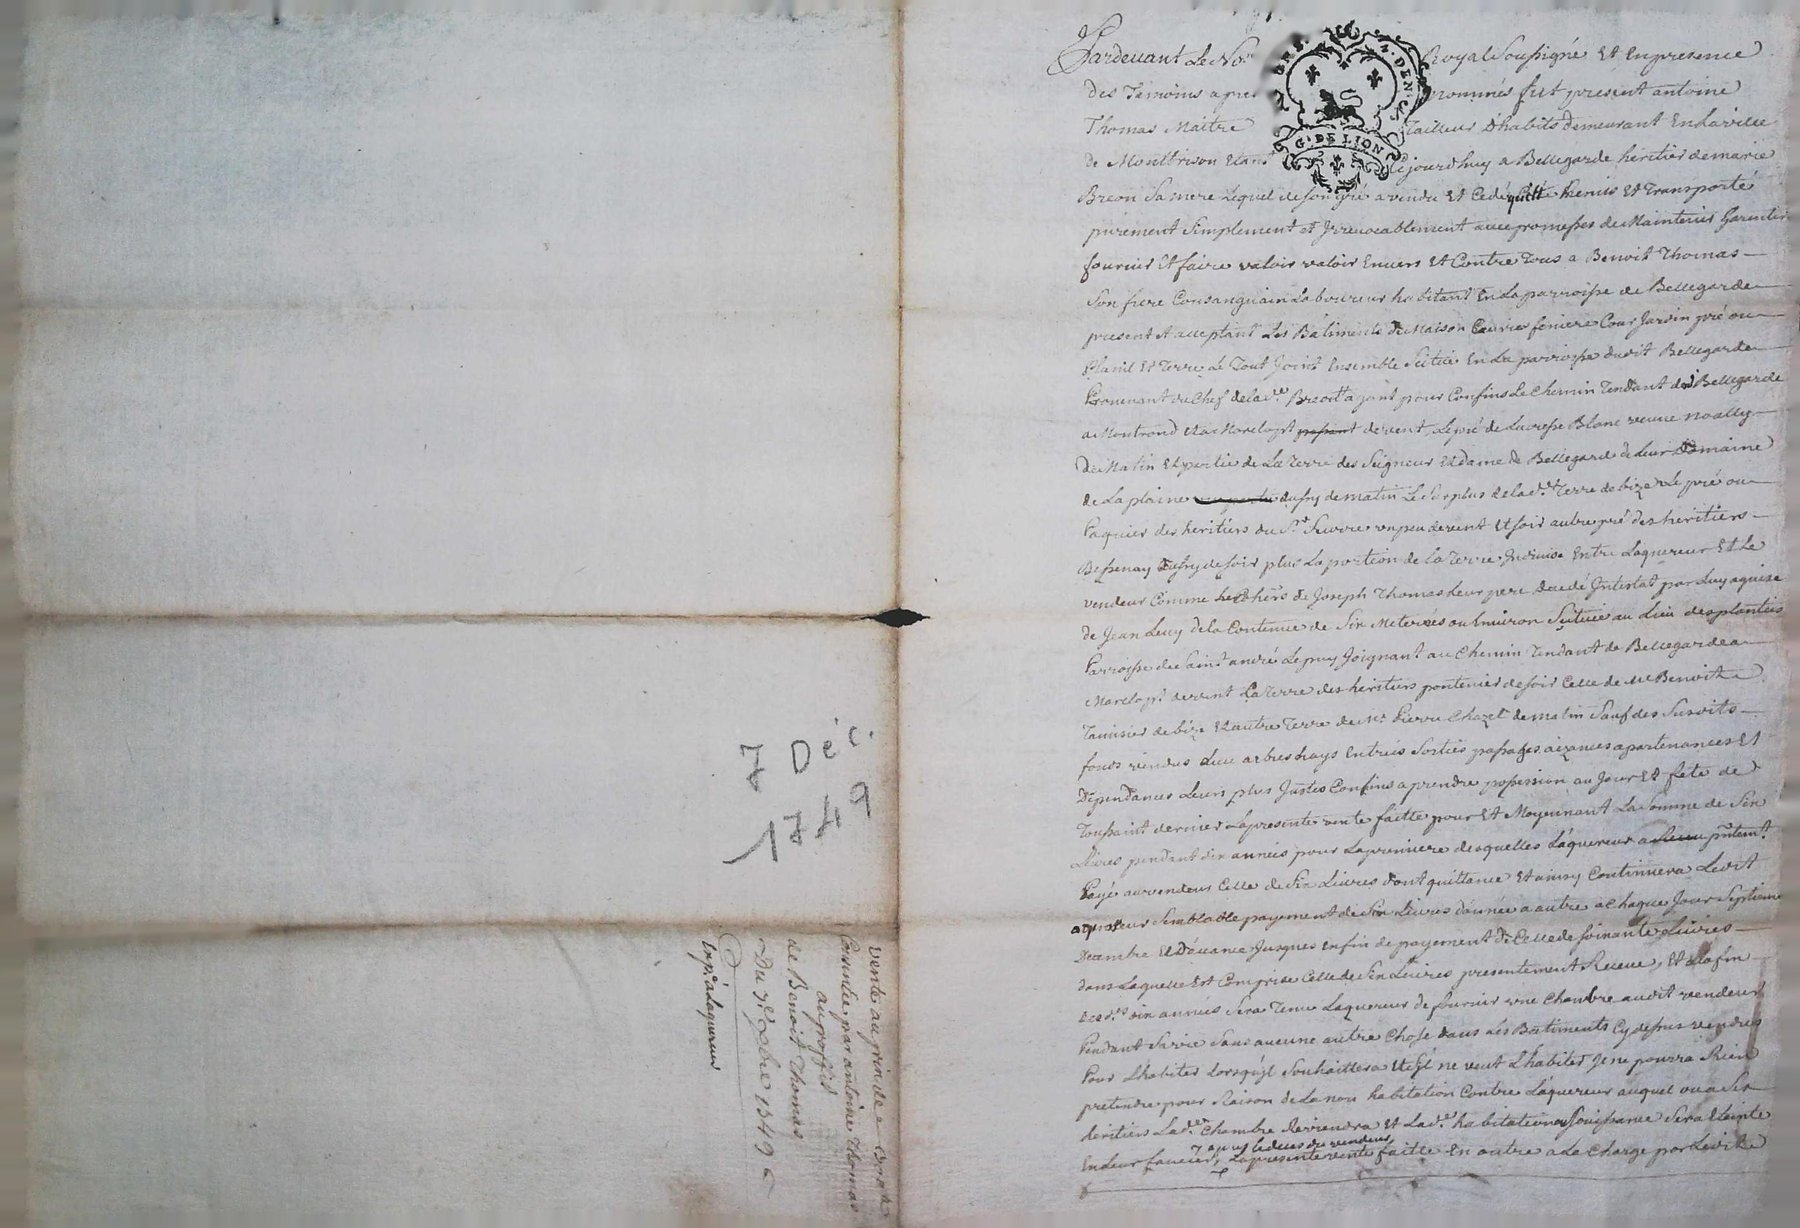 7 Déc.
1749
vente au prix de 60 #
Consentie par antoine Thomas
au proffit
de Benoit Thomas
Du 7e Xbre 1749
Exp.on a laquereur
G. DE LION
Pardevant Le No.re Royal Soussigné Et En presence
des Temoins apres nommés fut present antoine
Thomas Maitre Tailleur d'habits demeurant En La ville
de Montbrison Etant cejourdhuy a Bellegarde heritier de marie
Breon Sa mere Lequel de son gré a vendu Et Cedé quitté Remis Et Transporté
purement Simplement et Jrrevocablement avec promesses de Maintenir Garentir
fournir Et faire valoir valoir Envers Et Contre Tous a Benoit Thomas
Son frere Consanguain Laboureur habitant En La parroisse de Bellegarde
present et acceptant Les Batiments de Maison Ecuries feniere Cour Jardin pré ou
Et Terre Le Tout Joint Ensemble Scitué En La parroisse dudit Bellegarde
Provenant du Chef de lad.te Breon ayant pour Confins Le Chemin Tendant de Bellegarde
a Montrond Et a Marclopt passant de vent, Le pré de Lucresse Blanc veuve Noally
de Matin Et partie de La Terre des Seigneur Et dame de Bellegarde de Leur Domaine
de La plaine aussy de matin Le Surplus de lad.te Terre de bize Le pré ou
Paquier des heritiers du S.r un peu de vent Et soir autre pré des heritiers
Bessenay aussy de soir plus La portion de la Terre Jndivise Entre Laquereur Et Le
vendeur Comme heritiers de Joseph Thomas Leur pere decedé Jntestat par Luy aquise
de Jean de la Contenue de Six Meterées ou Environ Scituée au Lieu des plantées
Parroisse de Saint andré Le puy Joignant au Chemin Tendant de Bellegarde a
Marclopt de vent La Terre des heritiers pontenier de soir Celle de M.e Benoit
de bize Et autre Terre de M.e Pierre Chazet de matin Sauf des Susdits
fonds vendus avec arbres hays Entrées Sorties passages aizances apartenances Et
Dependances Leurs plus Justes Confins a prendre possession au Jour Et fête de
Toussaint dernier La presente vente faitte pour Et Moyennant La Somme de Six
Livres pendant dix années pour La premiere desquelles Laquereur a pntem.t
Payé au vendeur Celle de Six Livres dont quittance Et ainsy Continuera Ledit
aquereur Semblable payement de Six Livres d'année a autre a Chaque Jour Septieme
Decembre Et d'avance Jusques En fin de payement de Celle de soixante Livres
dans Laquelle Est Comprise Celle de Six Livres presentement Receue, Et a La fin
desd.es dix années Sera Tenu Laquereur de fournir une Chambre audit vendeur
Pendant Sa vie Sans aucune autre Chose dans Les Batiments Cy dessus vendus
Pour L'habiter Lorsqu'jl Souhaittera Et S'jl ne veut L'habiter Jl ne pourra Rien
pretendre pour Raison de La non habitation Contre Laquereur auquel ou a Ses
heritiers Lad.te Chambre Reviendra Et Lad.te habitation ou Jouissance Sera Eteinte
apres le deces du vendeur
En Leur faveur, La presente vente faitte En outre a La Charge par Ledit